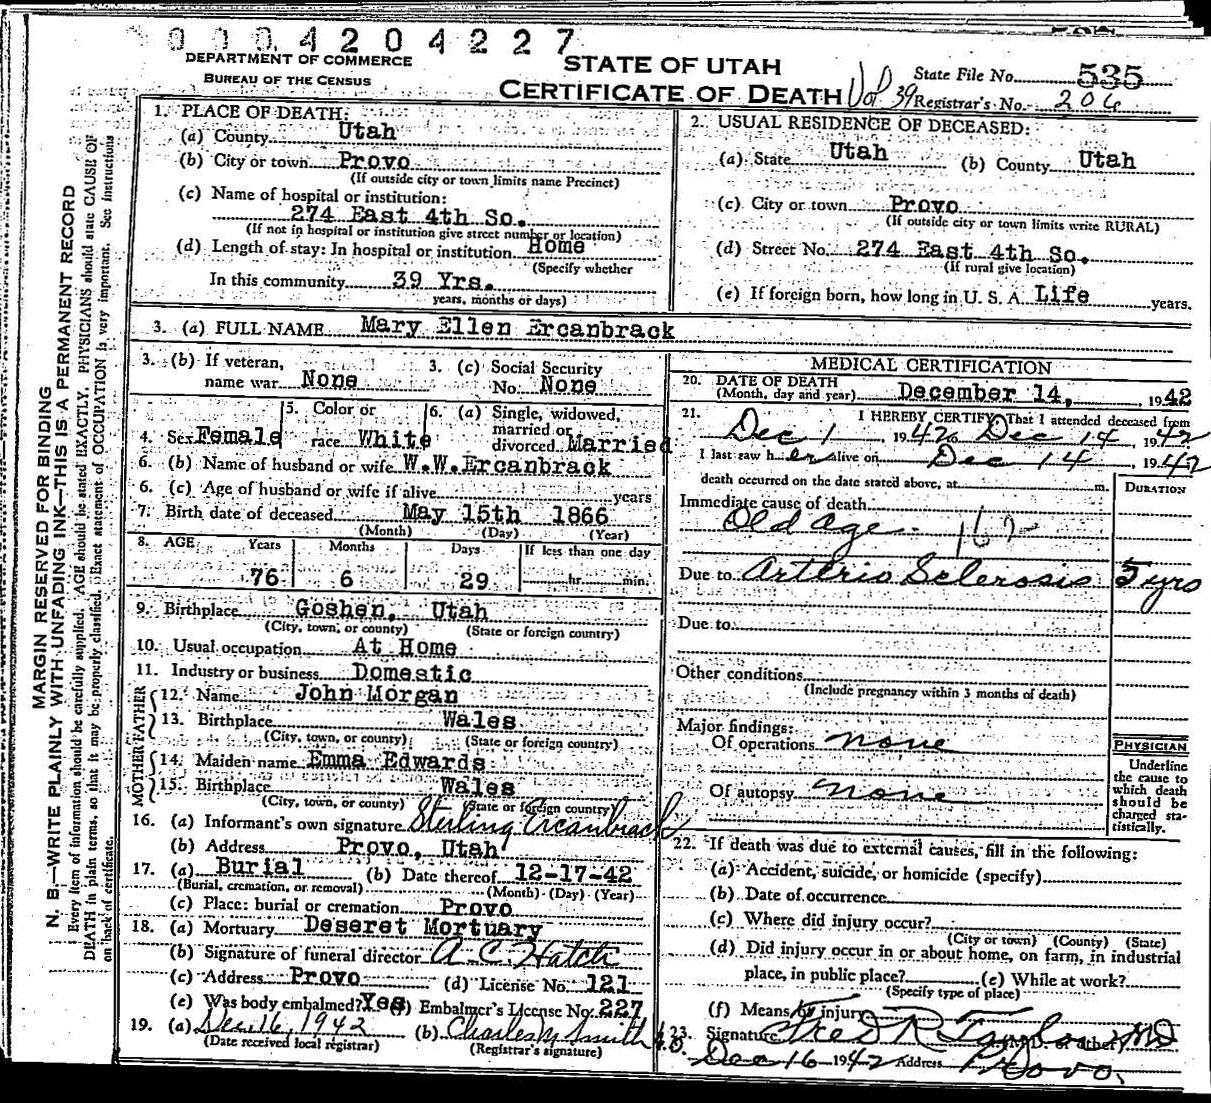 0 0 0 4 2 0 4 2 2 7
DEPARTMENT OF COMMERCE
BUREAU OF THE CENSUS
STATE OF UTAH
CERTIFICATE OF DEATH
Vol 39
State File No. 535
Registrar's No. 206
MARGIN RESERVED FOR BINDING
N. B.—WRITE PLAINLY WITH UNFADING INK—THIS IS A PERMANENT RECORD
Every item of information should be carefully supplied. AGE should be stated EXACTLY. PHYSICIANS should state CAUSE OF
DEATH in plain terms, so that it may be properly classified. Exact statement of OCCUPATION is very important. See instructions
on back of certificate.
1. PLACE OF DEATH:
(a) County Utah
(b) City or town Provo
(If outside city or town limits name Precinct)
(c) Name of hospital or institution:
274 East 4th So.
(If not in hospital or institution give street number or location)
(d) Length of stay: In hospital or institution Home
(Specify whether
In this community 39 Yrs.
years, months or days)
2. USUAL RESIDENCE OF DECEASED:
(a) State Utah (b) County Utah
(c) City or town Provo
(If outside city or town limits write RURAL)
(d) Street No. 274 East 4th So.
(If rural give location)
(e) If foreign born, how long in U. S. A. Life years.
3. (a) FULL NAME Mary Ellen Ercanbrack
3. (b) If veteran, name war None
3. (c) Social Security No. None
4. Sex Female
5. Color or race White
6. (a) Single, widowed, married or divorced Married
6. (b) Name of husband or wife W.W.Ercanbrack
6. (c) Age of husband or wife if alive years
7. Birth date of deceased May 15th 1866
(Month) (Day) (Year)
8. AGE Years Months Days If less than one day
76 6 29 hr. min.
9. Birthplace Goshen, Utah
(City, town, or county) (State or foreign country)
10. Usual occupation At Home
11. Industry or business Domestic
FATHER
12. Name John Morgan
13. Birthplace Wales
(City, town, or county) (State or foreign country)
MOTHER
14. Maiden name Emma Edwards
15. Birthplace Wales
(City, town, or county) (State or foreign country)
16. (a) Informant's own signature Sterling Ercanbrack
(b) Address Provo, Utah
17. (a) Burial (b) Date thereof 12-17-42
(Burial, cremation, or removal) (Month) (Day) (Year)
(c) Place: burial or cremation Provo
18. (a) Mortuary Deseret Mortuary
(b) Signature of funeral director A. C. Hatch
(c) Address Provo (d) License No. 121
(e) Was body embalmed? Yes (f) Embalmer's License No. 227
19. (a) Dec. 16, 1942 (b) Charles M Smith
(Date received local registrar) (Registrar's signature)
MEDICAL CERTIFICATION
20. DATE OF DEATH
(Month, day and year) December 14, 1942
21. I HEREBY CERTIFY That I attended deceased from
Dec 1, 1942 to Dec 14, 1942
I last saw her alive on Dec 14, 1942
death occurred on the date stated above, at m.
DURATION
Immediate cause of death
Old Age 162
Due to Arterio Sclerosis 5 yrs
Due to
Other conditions
(Include pregnancy within 3 months of death)
Major findings:
Of operations none
Of autopsy none
PHYSICIAN
Underline
the cause to
which death
should be
charged sta-
tistically.
22. If death was due to external causes, fill in the following:
(a) Accident, suicide, or homicide (specify)
(b) Date of occurrence
(c) Where did injury occur?
(City or town) (County) (State)
(d) Did injury occur in or about home, on farm, in industrial
place, in public place? (e) While at work?
(Specify type of place)
(f) Means of injury
23. Signature Fred R Taylor MD
(M. D. or other)
Dec 16 1942 Address Provo.